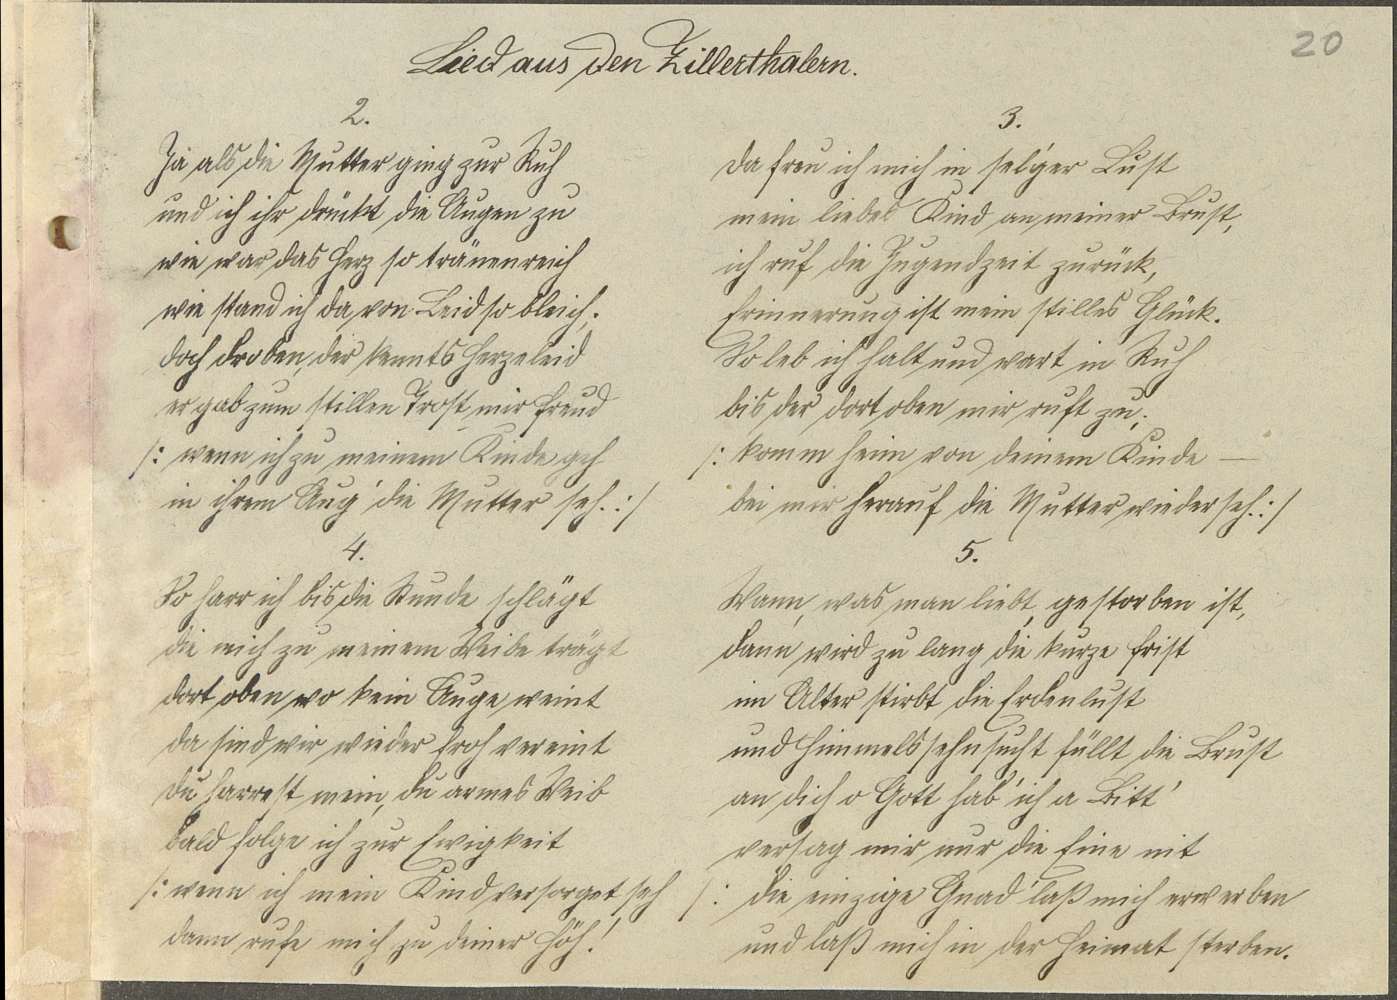 20
Lied aus den Zillerthalern.
2.
Ja als die Mutter ging zur Ruh
und ich ihr drückt die Augen zu
wie war das Herz so tränenreich
wie stand ich da von Leid so bleich.
doch droben, der kennts Herzeleid
er gab zum stillen Trost mir Freud
/: wenn ich zu meinem Kinde geh
in ihrem Aug' die Mutter seh. :/
3.
Da freu ich mich in sel'ger Lust
mein liebes Kind an meiner Brust,
ich ruf die Jugendzeit zurück,
Erinnerung ist mein stilles Glück.
So leb ich halt und wart in Ruh
bis der dort oben mir ruft zu;
/: komm heim von deinem Kinde —
bei mir herauf die Mutter wiederseh. :/
4.
So harr ich bis die Stunde schlägt
die mich zu meinem Weibe trägt
dort oben wo kein Auge weint
da sind wir wieder froh vereint
du harrest mein, du armes Weib
bald folge ich zur Ewigkeit
/: wenn ich mein Kind versorget seh
dann rufe mich zu deiner Höh!
5.
Wann, was man liebt, gestorben ist,
dann wird zu lang die kurze Frist
im Alter stirbt die Erdenlust
und Himmelssehnsucht füllt die Brust
an dich o Gott hab' ich a Bitt'
versag mir nur die Eine nit
/: die einzige Gnad' laß mich erwerben
und laß mich in der Heimat sterben.